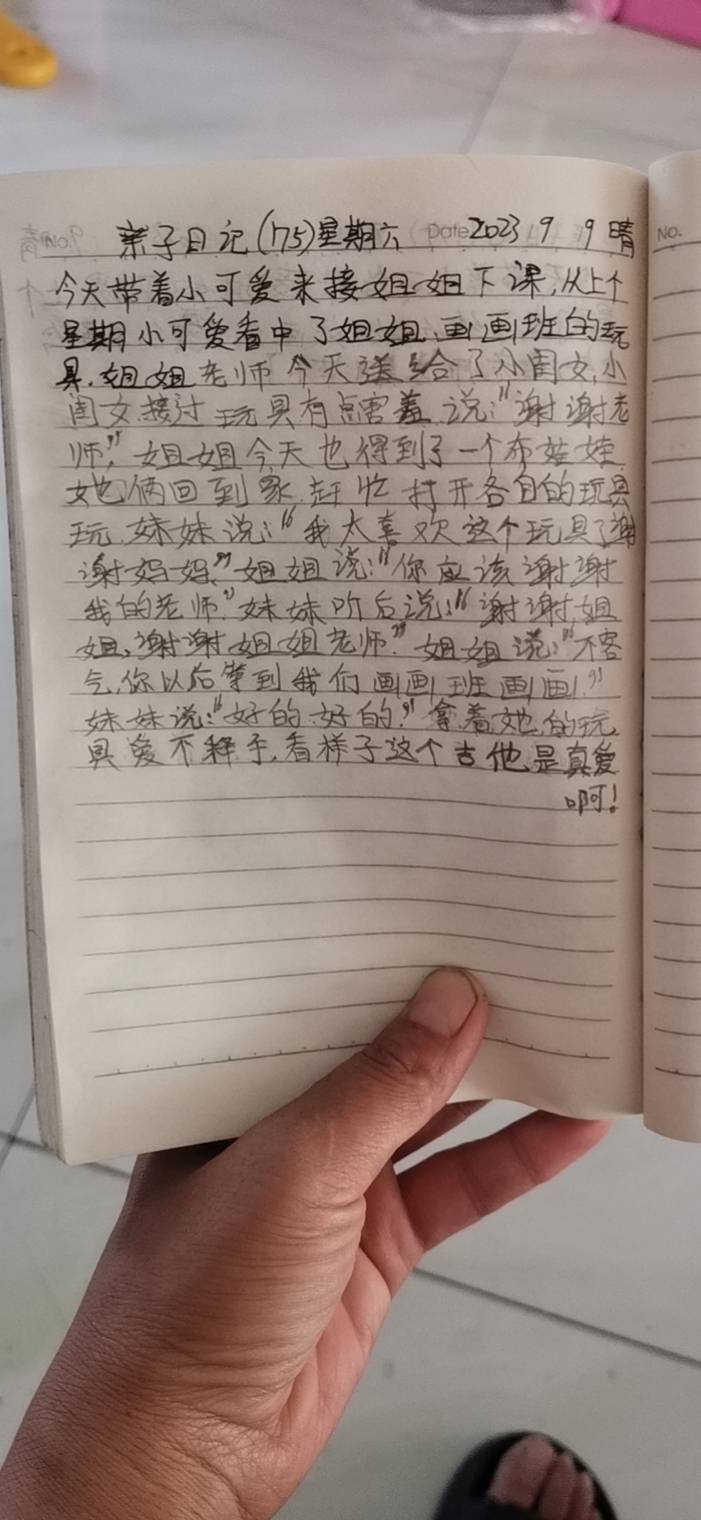 亲子日记(175)星期六 Date 2023 9 9 晴
No.
今天带着小可爱来接姐姐下课,从上个
星期小可爱看中了姐姐画画班的玩
具.姐姐老师今天送给了小闺女,小
闺女接过玩具有点害羞说:"谢谢老
师."姐姐今天也得到了一个布娃娃.
她俩回到家赶忙打开各自的玩具
玩.妹妹说:"我太喜欢这个玩具了谢
谢妈妈."姐姐说:"你应该谢谢
我的老师."妹妹听后说:"谢谢姐
姐,谢谢姐姐老师."姐姐说:"不客
气,你以后等到我们画画班画画."
妹妹说:"好的.好的."拿着她的玩
具爱不释手,看样子这个吉他是真爱
啊!